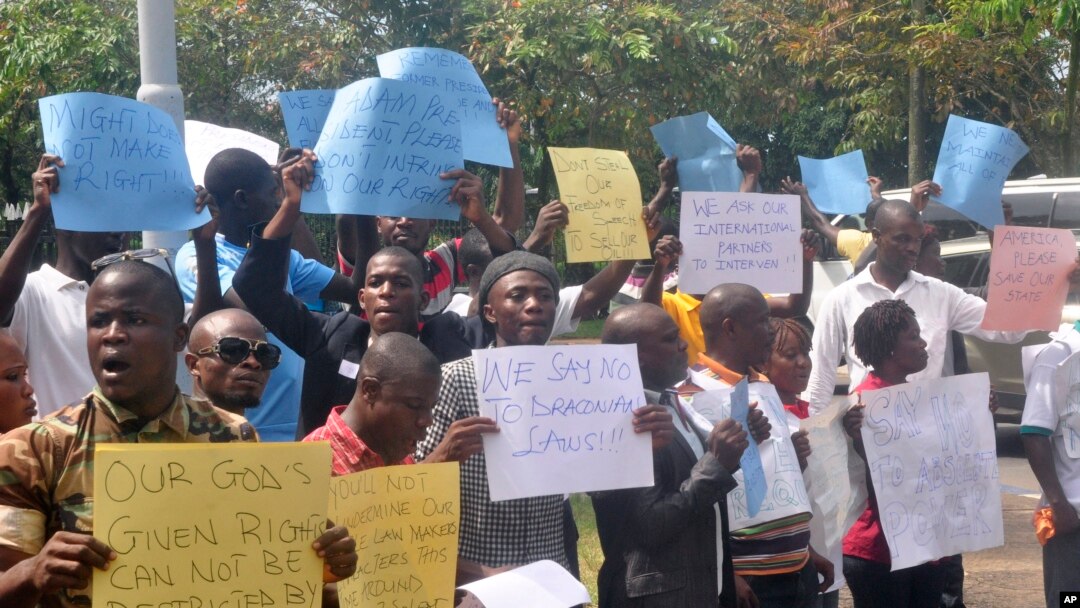 MIGHT DOES
NOT MAKE
RIGHT!!!
WE
ALL
ADAM PRE-
SIDENT, PLEASE
DON'T INFRING
ON OUR RIGHTS
REMEME
FORMER PRESID
DON'T STEAL
OUR
FREEDOM OF
SPEECH
TO SELL OUR
WE ASK OUR
INTERNATIONAL
PARTNERS
TO INTERVEN!!
WE NE
MAINTAI
ALL OF
AMERICA,
PLEASE
SAVE OUR
STATE
WE SAY NO
TO DRACONIAN
LAWS!!!
SAY NO
TO ABSOLUTE
POWER
OUR GOD'S
GIVEN RIGHTS
CAN NOT BE
RESTRICTED BY
YOU'LL NOT
UNDERMINE OUR
LAW MAKERS
THIS
AROUND
AP